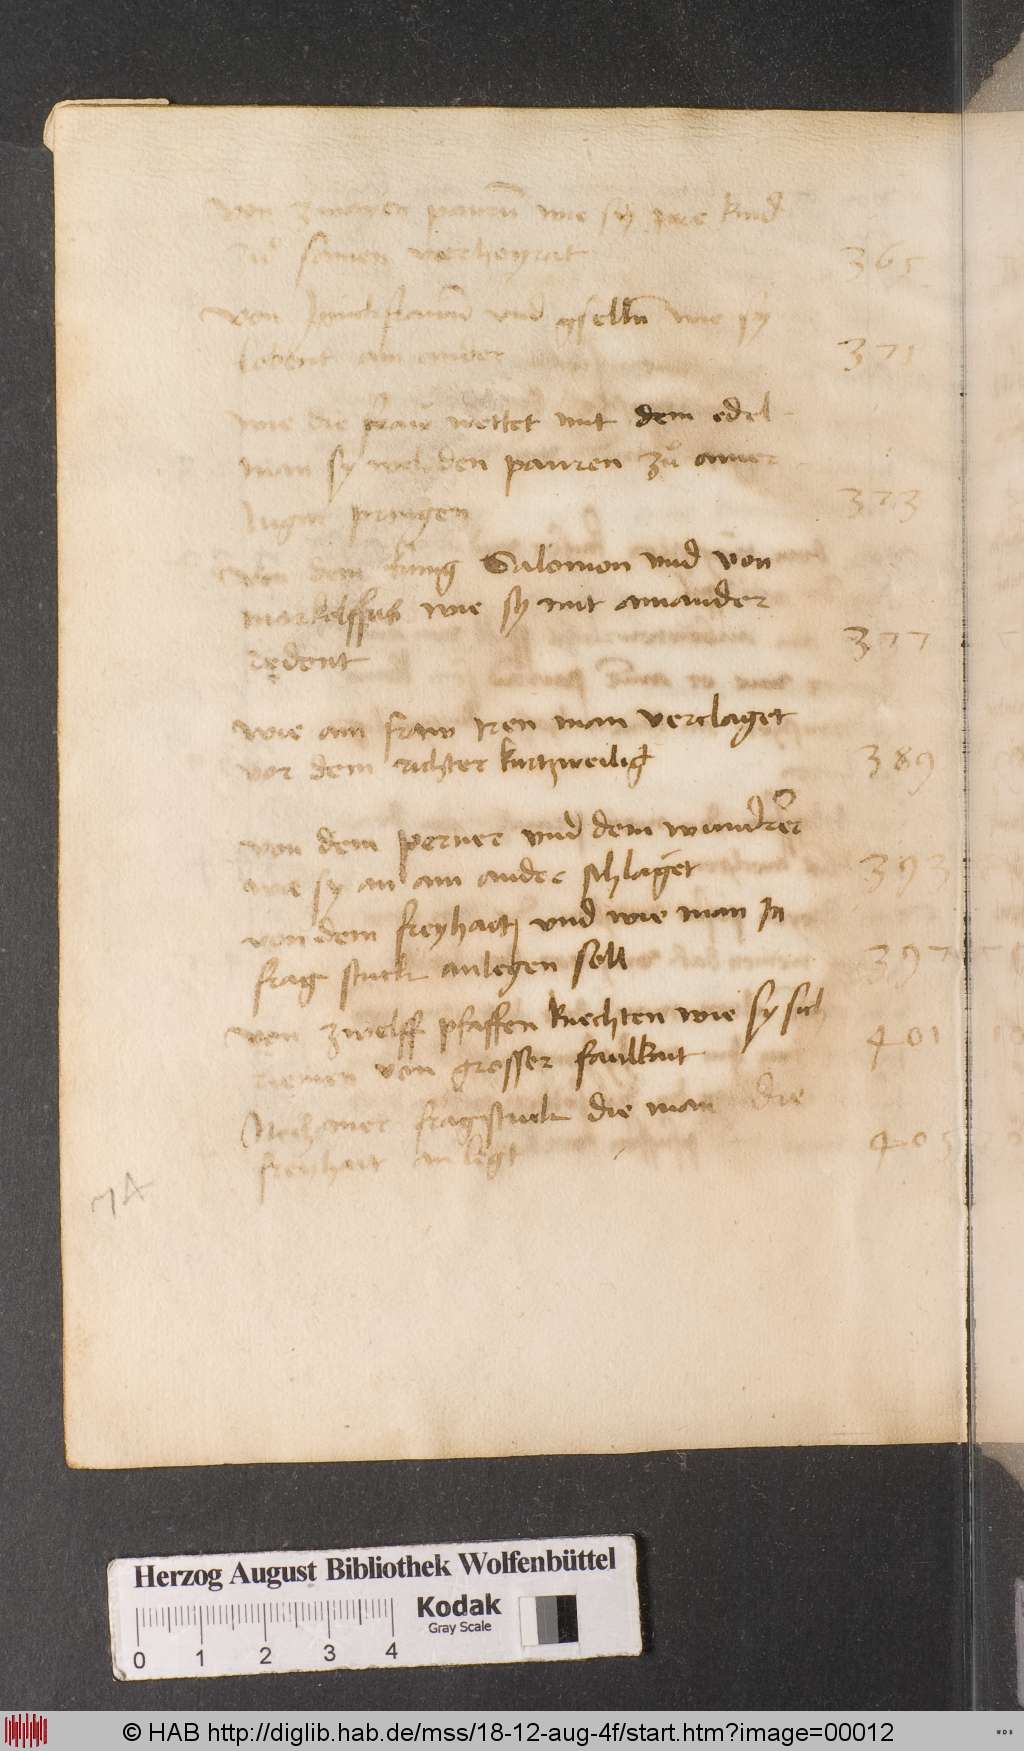 von zwayen paurn̄ wie sy jre kind
zů samen verheyrat
365
von Junckfrawn̄ und gselln̄ wie sy
lobent an ander
371
wie die fraw wettet mit dem edel
man sy wel den pauren zů ainer
lugin pringen
373
Von dem kunig Salomon und von
markolffus wie sy mit ainander
redent
377
wie ain fraw iren man verclaget
vor dem richter kurtzweilig
389
von dem perner und dem wundrer
wie sy an ain ander schlaget
393
von dem freyhart und wie man In
frag stuck anlegen soll
397
von zwelff pfaffen knechten wie sy sich
riemen von grosser faulkait
401
Noch mer fragstuck die man die
freyhait an legt
405
74
Herzog August Bibliothek Wolfenbüttel
Kodak
Gray Scale
0 1 2 3 4
© HAB http://diglib.hab.de/mss/18-12-aug-4f/start.htm?image=00012